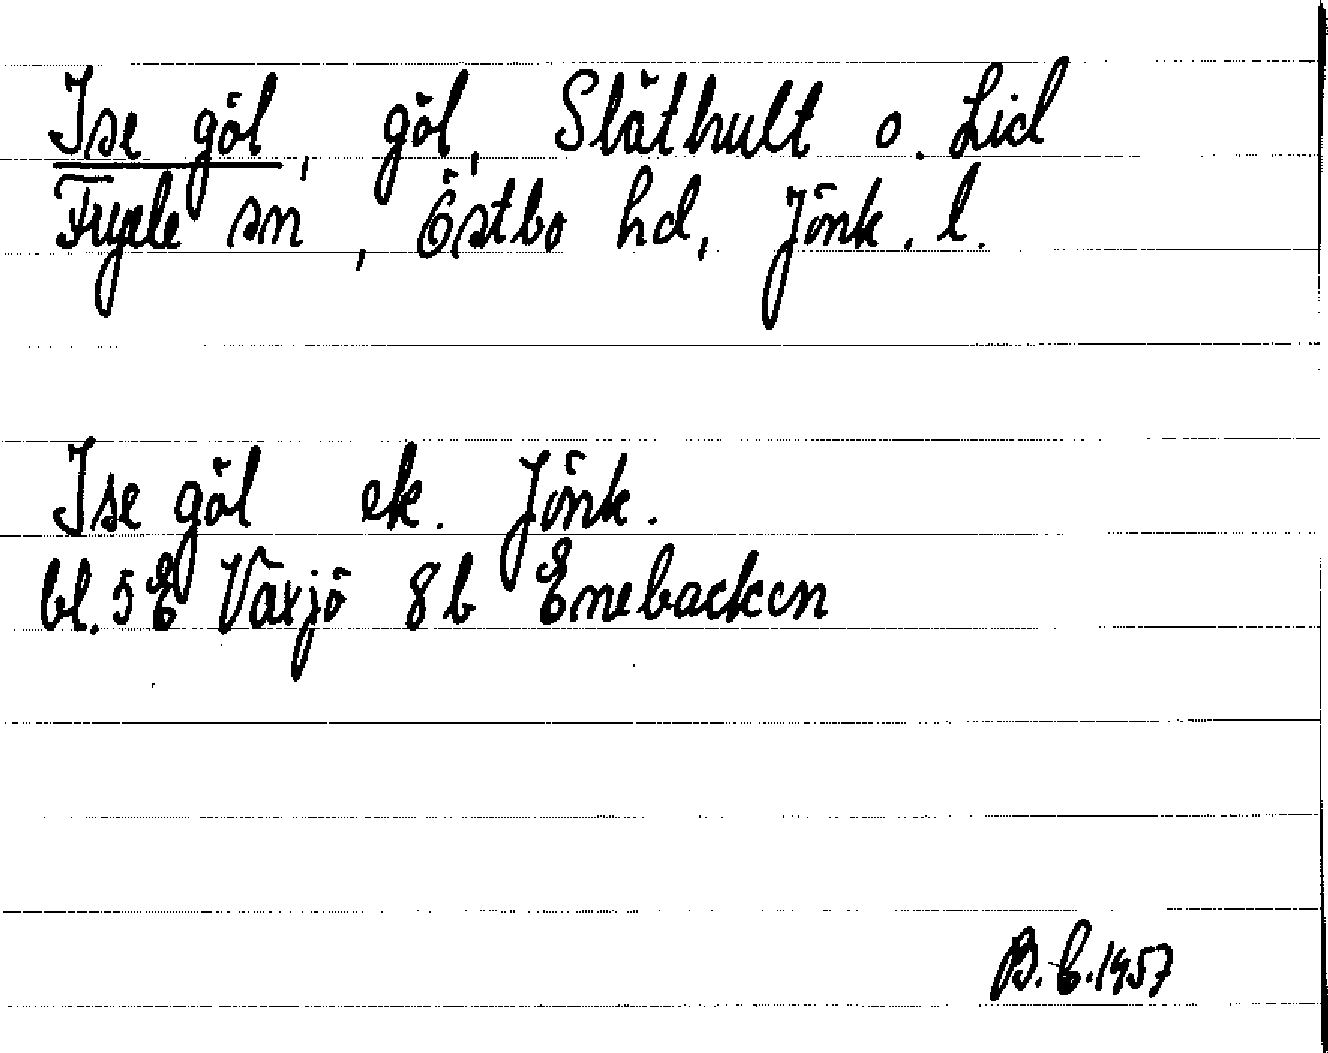 Ise göl, göl, Släthult o. Lid
Fryele sn, Östbo hd, Jönk. l.
Ise göl ek. Jönk.
bl. 5 E Växjö 8 b Enebacken
B. E. 1957